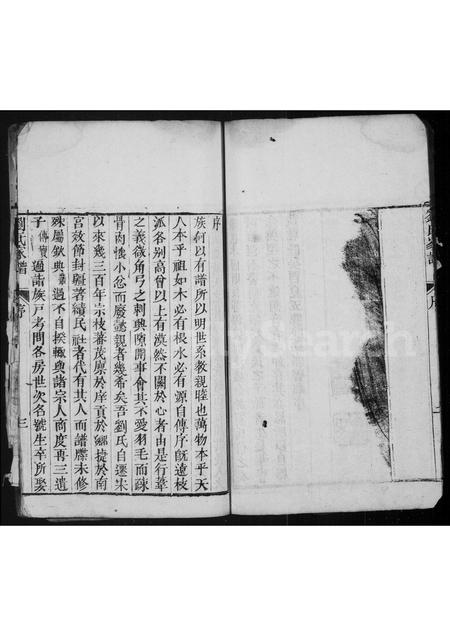 序
族何以有譜所以明世系敦親睦也萬物本乎天
人本乎祖如木必有根水必有源自傳序旣遠枝
派各别高曾以上有漠然不關於心者由是行葦
之義微角弓之刺興隙開事會其不愛羽毛而疎
骨肉懐小忿而廢懿親者幾希矣吾劉氏自遷米
以來幾三百年宗枝蕃茂廪於庠貢於鄉捷於南
宮效節封疆著績民社者代有其人而譜牒未修
殊屬欽典過不自揆輒與諸宗人商度再三遺
子傳讀過諸族戸考問各房世次名號生卒所娶
劉氏家譜
序
三